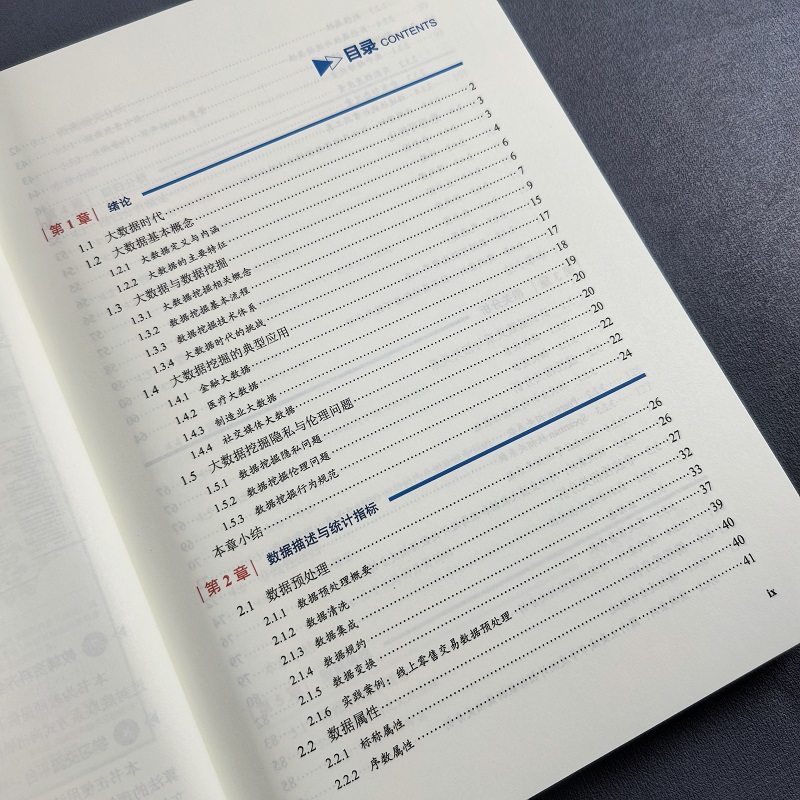 目录 CONTENTS
第 1 章 绪论
1.1 大数据时代 2
1.2 大数据基本概念 3
1.2.1 大数据定义与内涵 3
1.2.2 大数据的主要特征 4
1.3 大数据与数据挖掘 6
1.3.1 大数据挖掘相关概念 6
1.3.2 数据挖掘基本流程 7
1.3.3 数据挖掘技术体系 9
1.3.4 大数据时代的挑战 15
1.4 大数据挖掘的典型应用 17
1.4.1 金融大数据 17
1.4.2 医疗大数据 18
1.4.3 制造业大数据 19
1.4.4 社交媒体大数据 20
1.5 大数据挖掘隐私与伦理问题 20
1.5.1 数据挖掘隐私问题 20
1.5.2 数据挖掘伦理问题 22
1.5.3 数据挖掘行为规范 22
本章小结 24
第 2 章 数据描述与统计指标
2.1 数据预处理 26
2.1.1 数据预处理概要 26
2.1.2 数据清洗 27
2.1.3 数据集成 32
2.1.4 数据规约 33
2.1.5 数据变换 37
2.1.6 实践案例：线上零售交易数据预处理 39
2.2 数据属性 40
2.2.1 标称属性 40
2.2.2 序数属性 41
ix